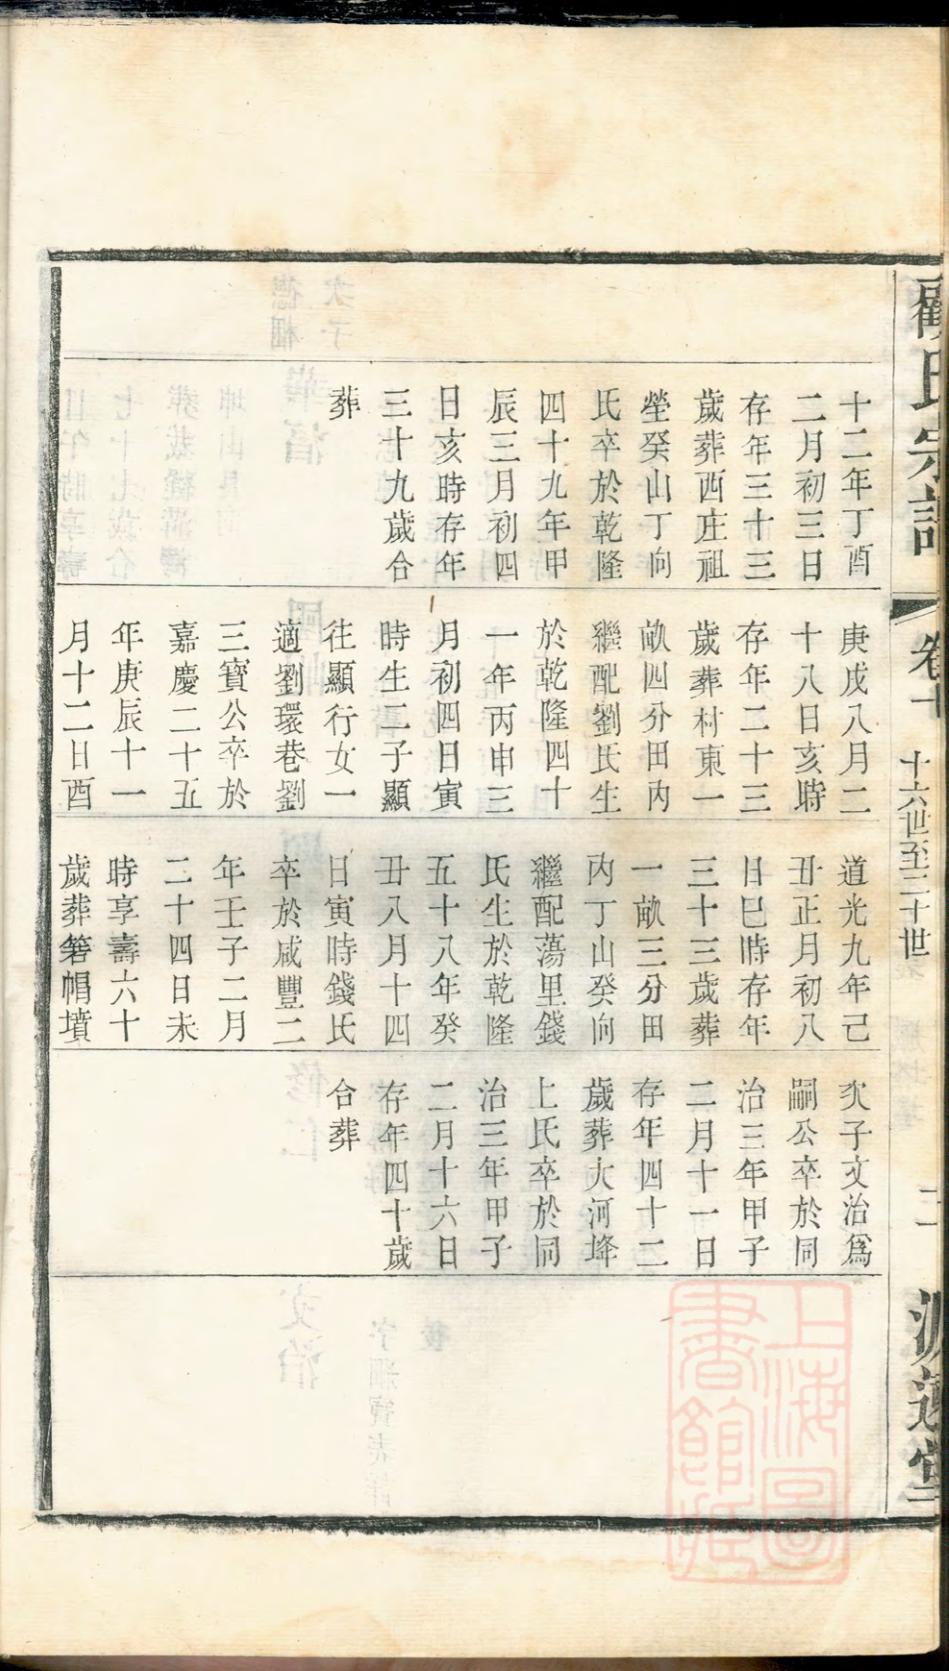 顧氏宗譜
卷十
十六世至二十世
二
十二年丁酉
二月初三日
存年三十三
歲葬西庄祖
塋癸山丁向
氏卒於乾隆
四十九年甲
辰三月初四
日亥時存年
三十九歲合
葬
庚戌八月二
十八日亥時
存年二十三
歲葬村東一
畝四分田內
繼配劉氏生
於乾隆四十
一年丙申三
月初四日寅
時生二子顯
往顯行女一
適劉環巷劉
三寶公卒於
嘉慶二十五
年庚辰十一
月十二日酉
道光九年己
丑正月初八
日巳時存年
三十三歲葬
一畝三分田
內丁山癸向
繼配蕩里錢
氏生於乾隆
五十八年癸
丑八月十四
日寅時錢氏
卒於咸豐二
年壬子二月
二十四日未
時享壽六十
歲葬箬帽墳
次子文治爲
嗣公卒於同
治三年甲子
二月十一日
存年四十二
歲葬大河埄
上氏卒於同
治三年甲子
二月十六日
存年四十歲
合葬
上海圖
書館藏